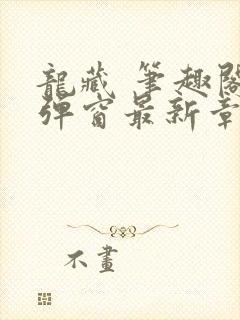 龍藏 筆趣閣
彈窗最新章
不畫